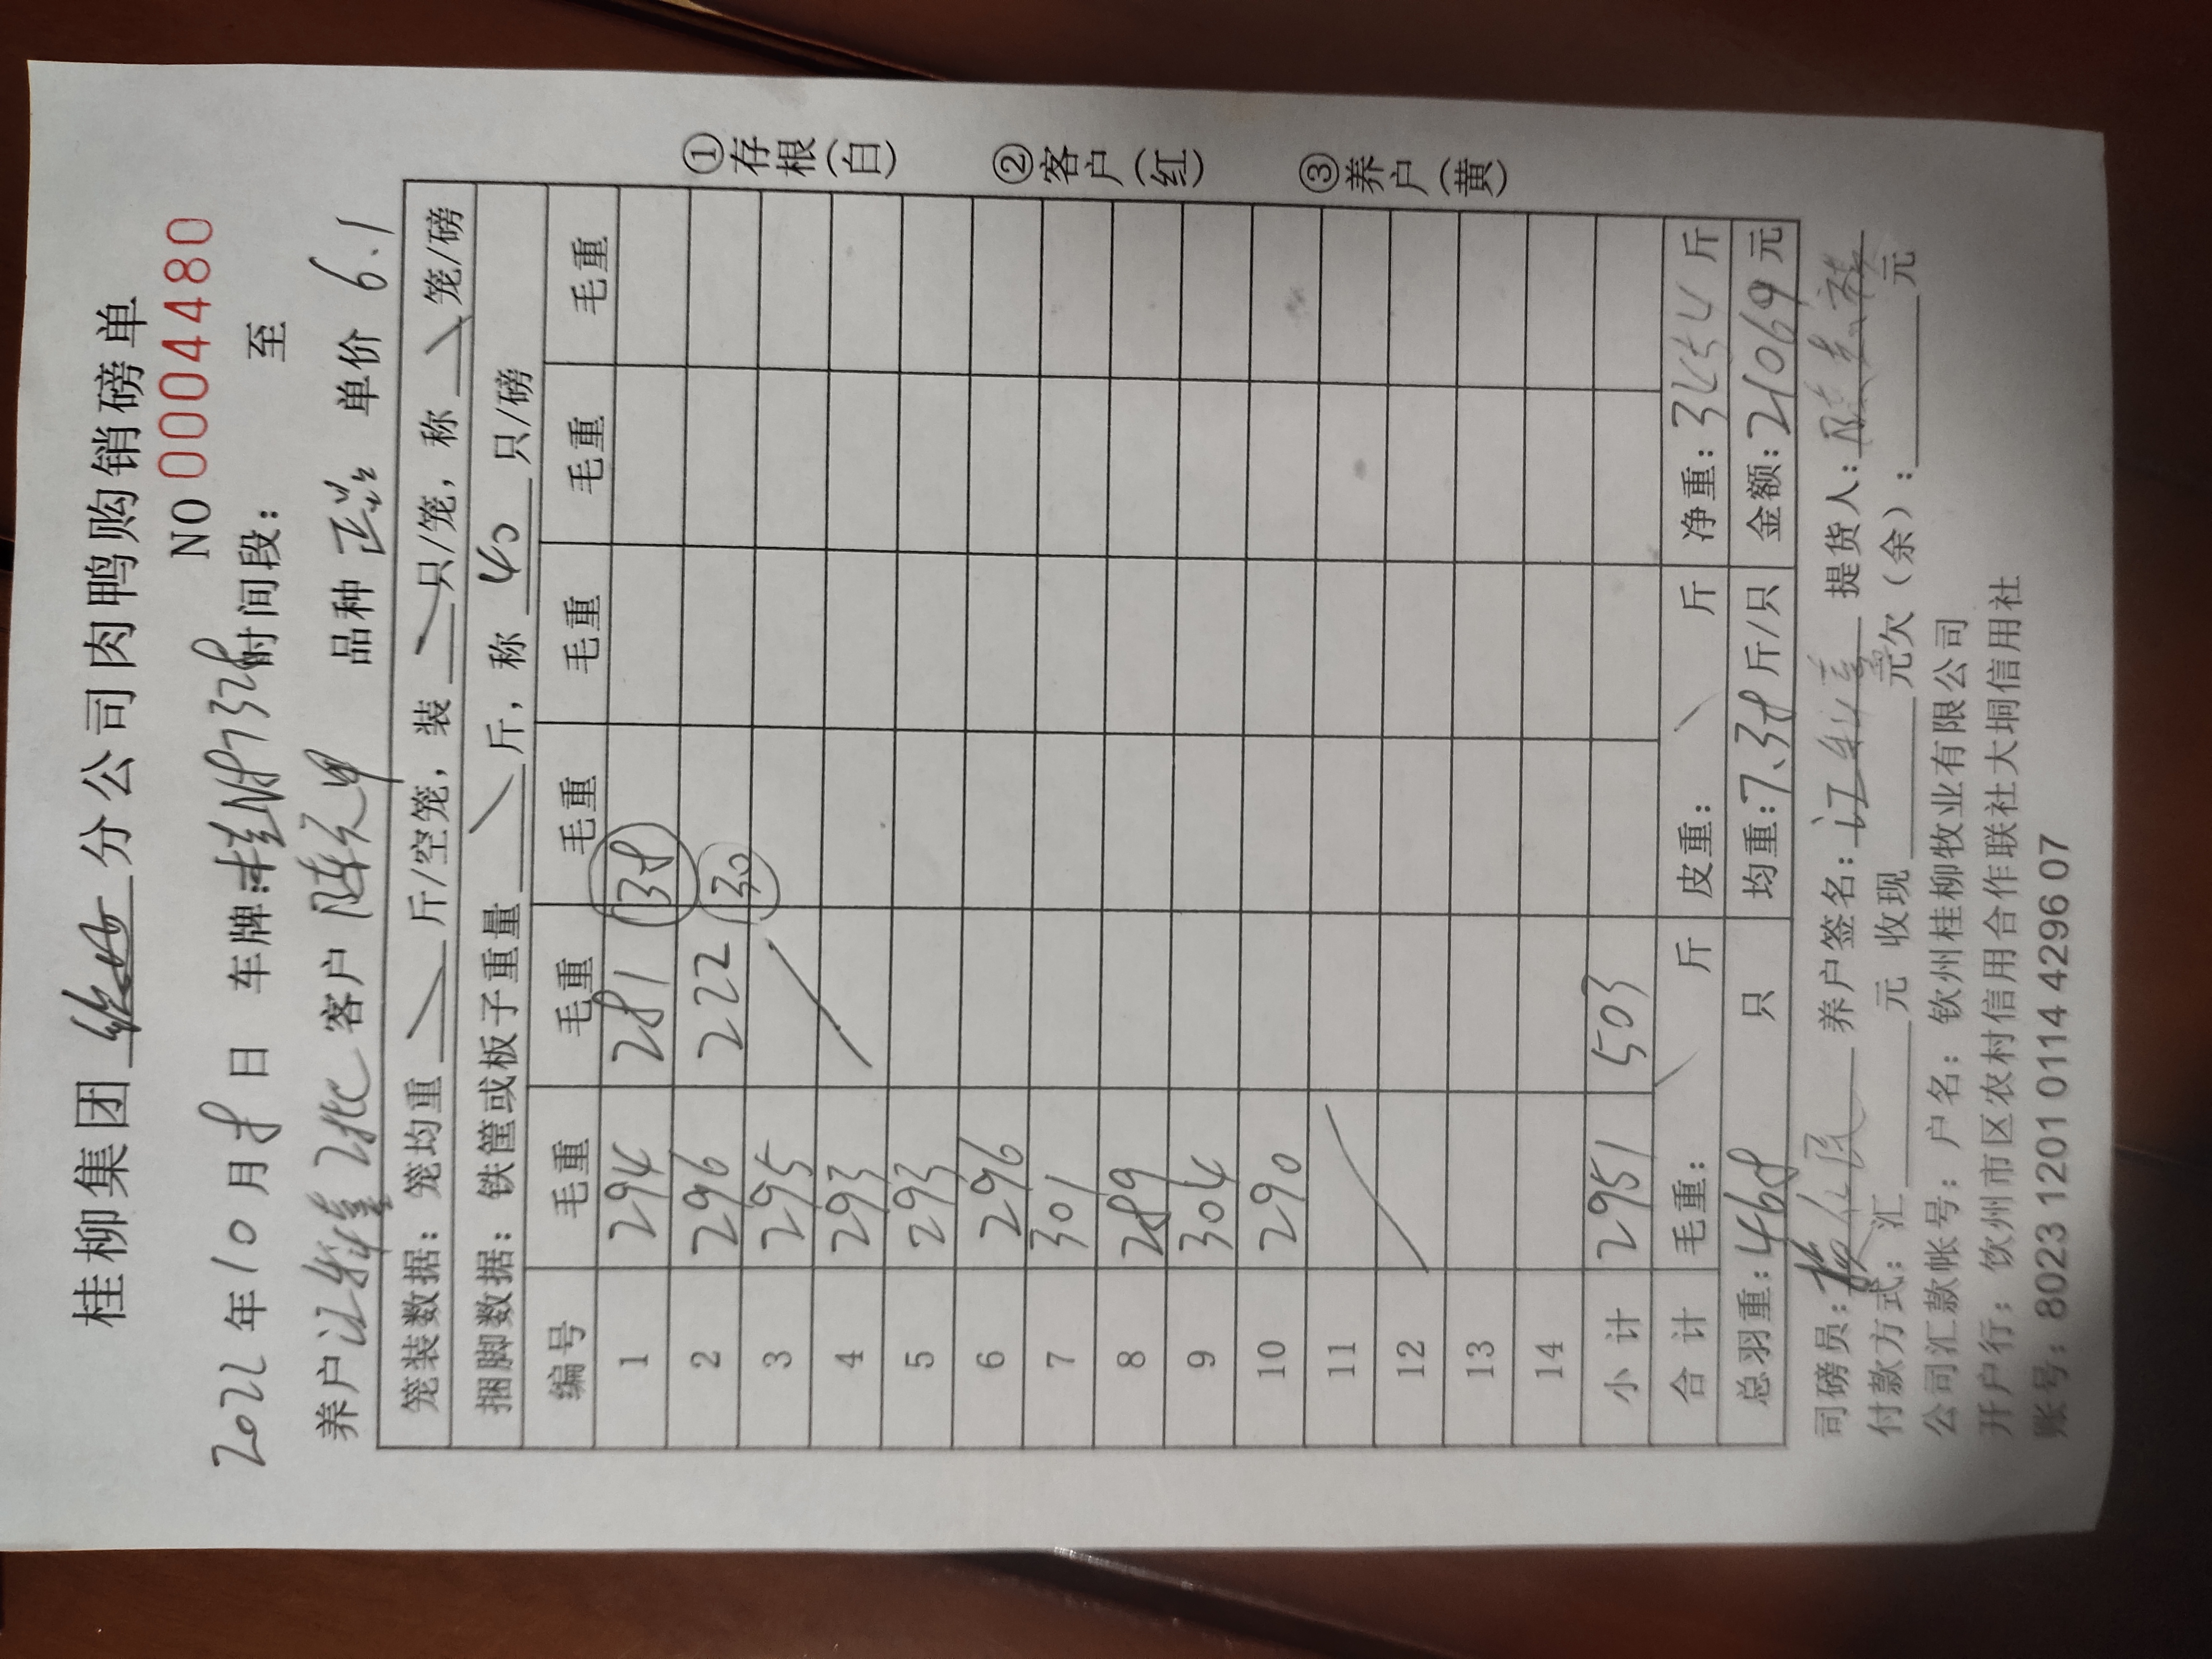 桂柳集团 分公司肉鸭购销磅单
NO 0004480
2022年10月8日 车牌:桂N87328 时间段: 至
养户 客户 陈 品种 正 单价 6.1
笼装数据: 笼均重 斤/空笼, 装 只/笼, 称 笼/磅
捆脚数据: 铁筐或板子重量 斤, 称 40 只/磅
编号 毛重 毛重 毛重 毛重 毛重 毛重
1 294 281 38
2 296 222 30
3 295
4 293
5 293
6 296
7 301
8 289
9 304
10 290
11
12
13
14
小计 2951 503
合计 毛重: 斤 皮重: 斤 净重: 3454 斤
总羽重: 468 只 均重: 7.38 斤/只 金额: 21069 元
司磅员: 养户签名: 提货人:
付款方式: 汇 元 收现 元欠(余): 元
公司汇款帐号: 户名: 钦州桂柳牧业有限公司
开户行: 钦州市区农村信用合作联社大垌信用社
账号: 8023 1201 0114 4296 07
①存根(白)
②客户(红)
③养户(黄)